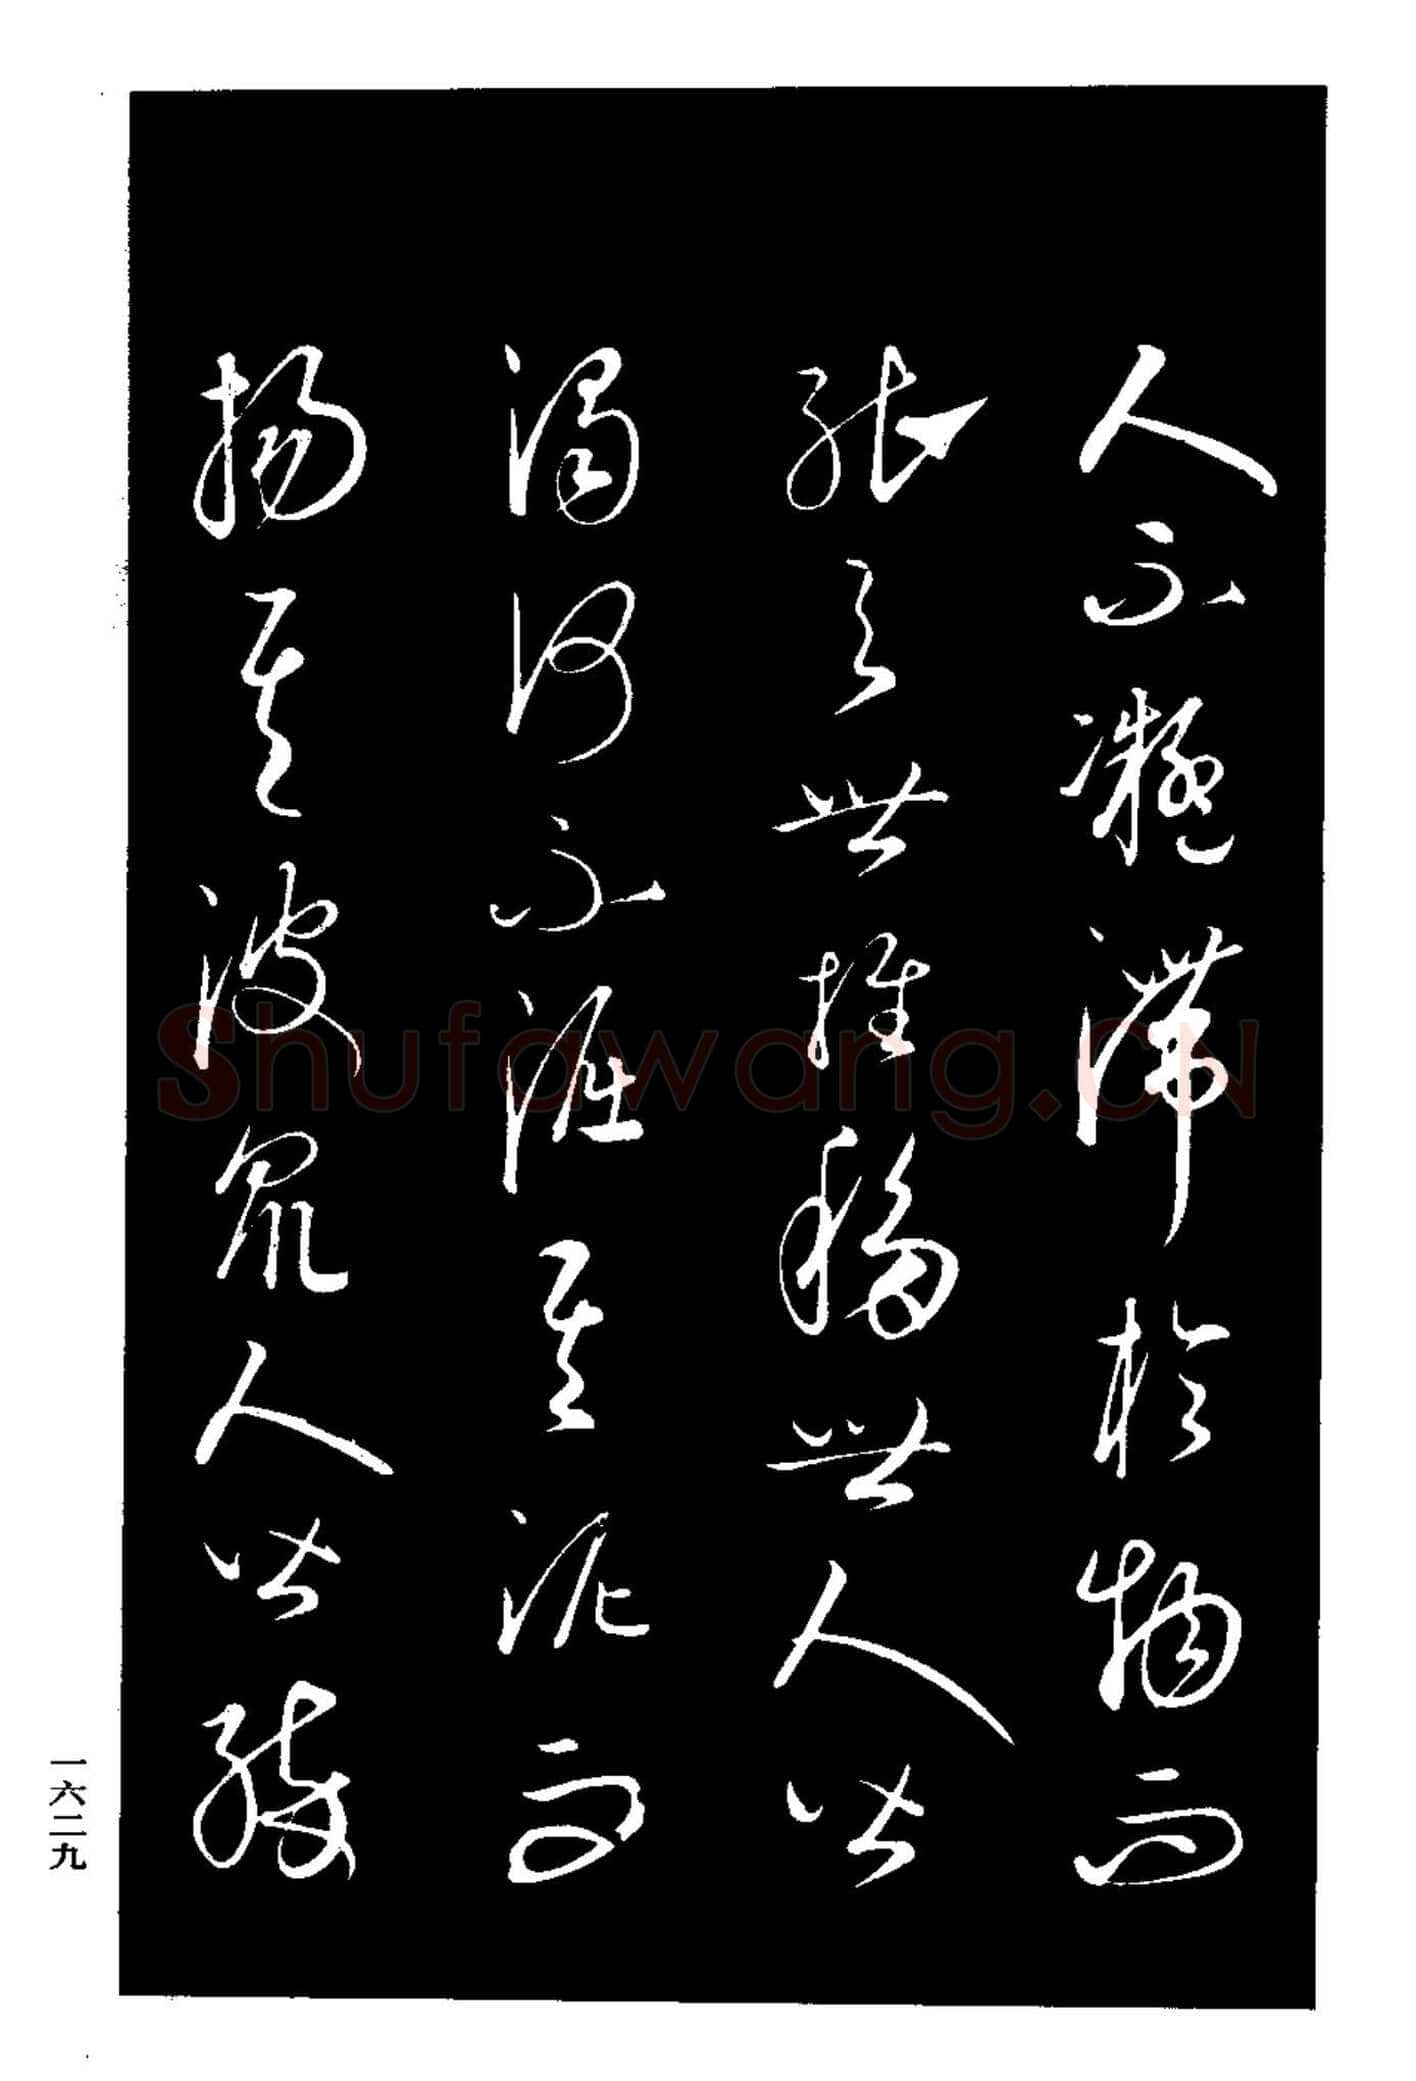 人不凝滯於物而
能与世推移世人皆
濁何不淈其泥而
揚其波眾人皆醉
一六二九
Shufawang.CN